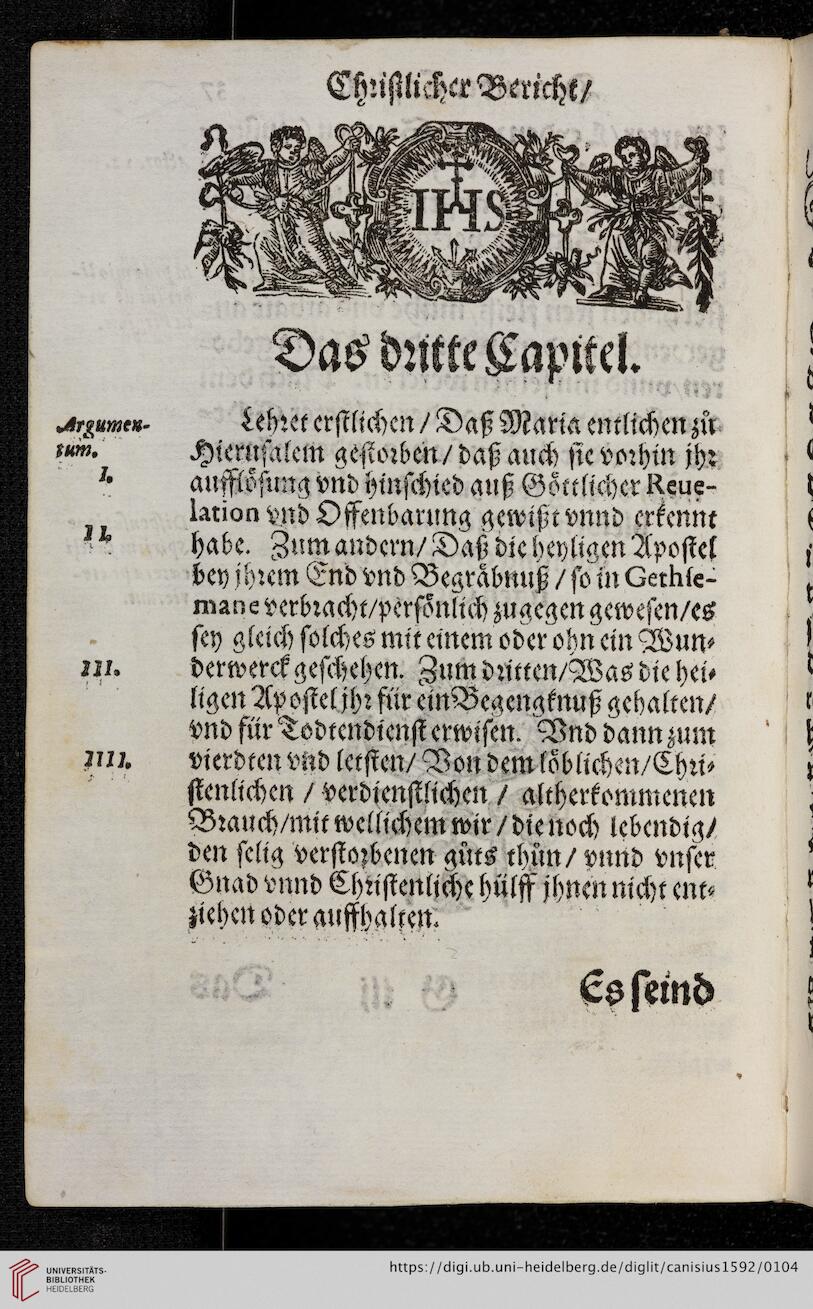 Christlicher Bericht/
IHS
Das dritte Capitel.
Argumen-
tum.
I.
II.
III.
IIII.
Lehret erstlichen / Daß Maria entlichen zů
Hierusalem gestorben / daß auch sie vorhin jhr
aufflösung vnd hinschied auß Göttlicher Reue-
lation vnd Offenbarung gewißt vnnd erkennt
habe. Zum andern/ Daß die heyligen Apostel
bey jhrem End vnd Begräbnuß / so in Gethse-
mane verbracht/persönlich zugegen gewesen/es
sey gleich solches mit einem oder ohn ein Wun-
derwerck geschehen. Zum dritten/Was die hei-
ligen Apostel jhr für ein Begengknuß gehalten/
vnd für Todtendienst erwisen. Vnd dann zum
vierdten vnd letsten/ Von dem löblichen/Chri-
stenlichen / verdienstlichen / altherkommenen
Brauch/mit wellichem wir / die noch lebendig/
den selig verstorbenen gůts thůn/ vnnd vnser
Gnad vnnd Christenliche hülff jhnen nicht ent-
ziehen oder auffhalten.
Es seind
UNIVERSITÄTS-
BIBLIOTHEK
HEIDELBERG
https://digi.ub.uni-heidelberg.de/diglit/canisius1592/0104